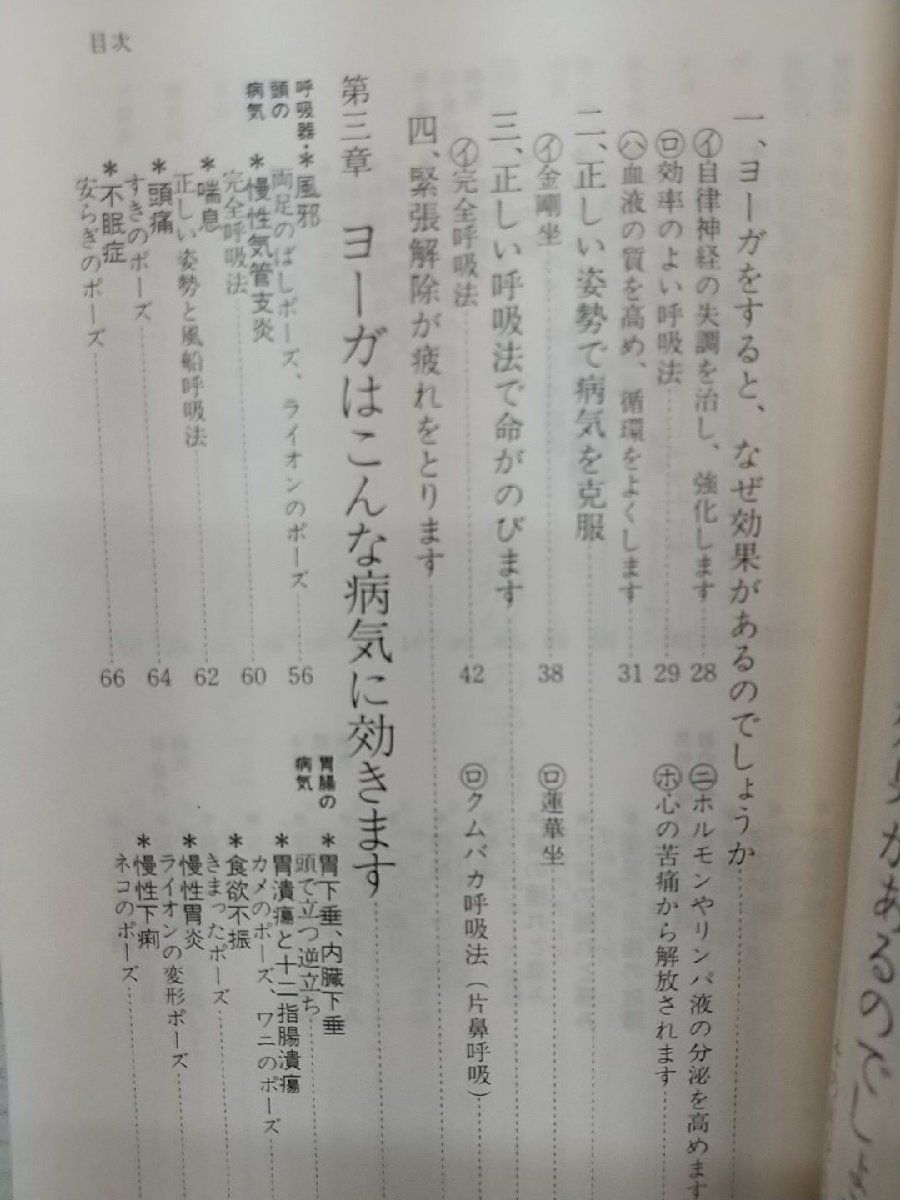 目次
一、ヨーガをすると、なぜ効果があるのでしょうか
㋑自律神経の失調を治し、強化します 28
㋥ホルモンやリンパ液の分泌を高めます
㋺効率のよい呼吸法 29
㋭心の苦痛から解放されます
㋩血液の質を高め、循環をよくします 31
二、正しい姿勢で病気を克服
㋑金剛坐 38
㋺蓮華坐
三、正しい呼吸法で命がのびます
㋑完全呼吸法 42
㋺クムバカ呼吸法（片鼻呼吸）
四、緊張解除が疲れをとります
第三章 ヨーガはこんな病気に効きます
呼吸器・
頭の
病気
＊風邪
両足のばしポーズ、ライオンのポーズ 56
＊慢性気管支炎
完全呼吸法 60
＊喘息
正しい姿勢と風船呼吸法 62
＊頭痛
すきのポーズ 64
＊不眠症
安らぎのポーズ 66
胃腸の
病気
＊胃下垂、内臓下垂
頭で立つ逆立ち
＊胃潰瘍と十二指腸潰瘍
カメのポーズ、ワニのポーズ
＊食欲不振
きまったポーズ
＊慢性胃炎
ライオンの変形ポーズ
＊慢性下痢
ネコのポーズ
があるのでしょ